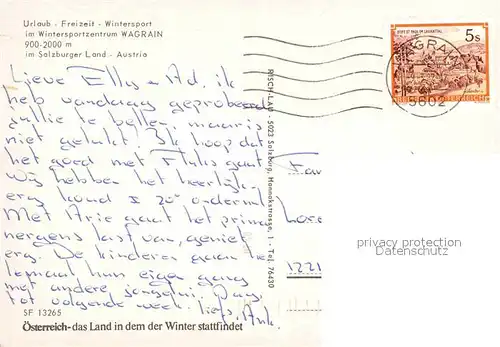 Urlaub - Freizeit - Wintersport
im Wintersportzentrum WAGRAIN
900-2000 m
im Salzburger Land - Austria
Lieve Elly + Ad. ik
heb vandaag geprobeerd
jullie te bellen, maar is
niet gelukt. Ik hoop dat
het goed met gaat
Wij hebben het heerlijk,
erg koud ± 20° onder nul
Met Arie gaat het prima
nergens last van, geniet
erg. De kinderen gaan
helemaal hun eigen gang
met andere jongelui. Dag,
tot volgende week. liefs, Ank.
SF 13265
Österreich - das Land in dem der Winter stattfindet
RISCH-LAU - 5023 Salzburg, Hannakstrasse, 1 - Tel. 76430
STIFT ST. PAUL IM LAVANTTAL
5s
REPUBLIK ÖSTERREICH
WAGRAIN
5602
Fam
1221
privacy protection
Datenschutz